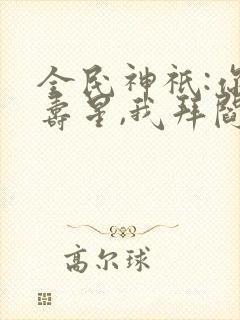 全民神祇:你
寿星,我拜阎
高尔球